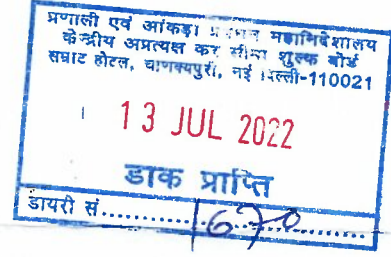 प्रणाली एवं आंकड़ा प्रबंधन महानिदेशालय
केन्द्रीय अप्रत्यक्ष कर सीमा शुल्क बोर्ड
सम्राट होटल, चाणक्यपुरी, नई दिल्ली-110021
13 JUL 2022
डाक प्राप्ति
डायरी सं..........1670..........